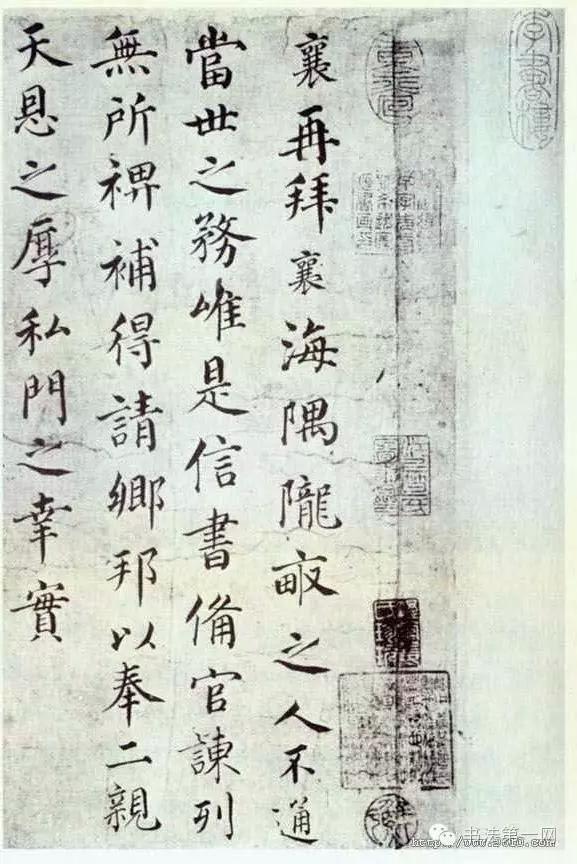 李書樓
襄再拜襄海隅隴畝之人不通
當世之務唯是信書備官諫列
無所裨補得請鄉邦以奉二親
天恩之厚私門之幸實
书法第一网